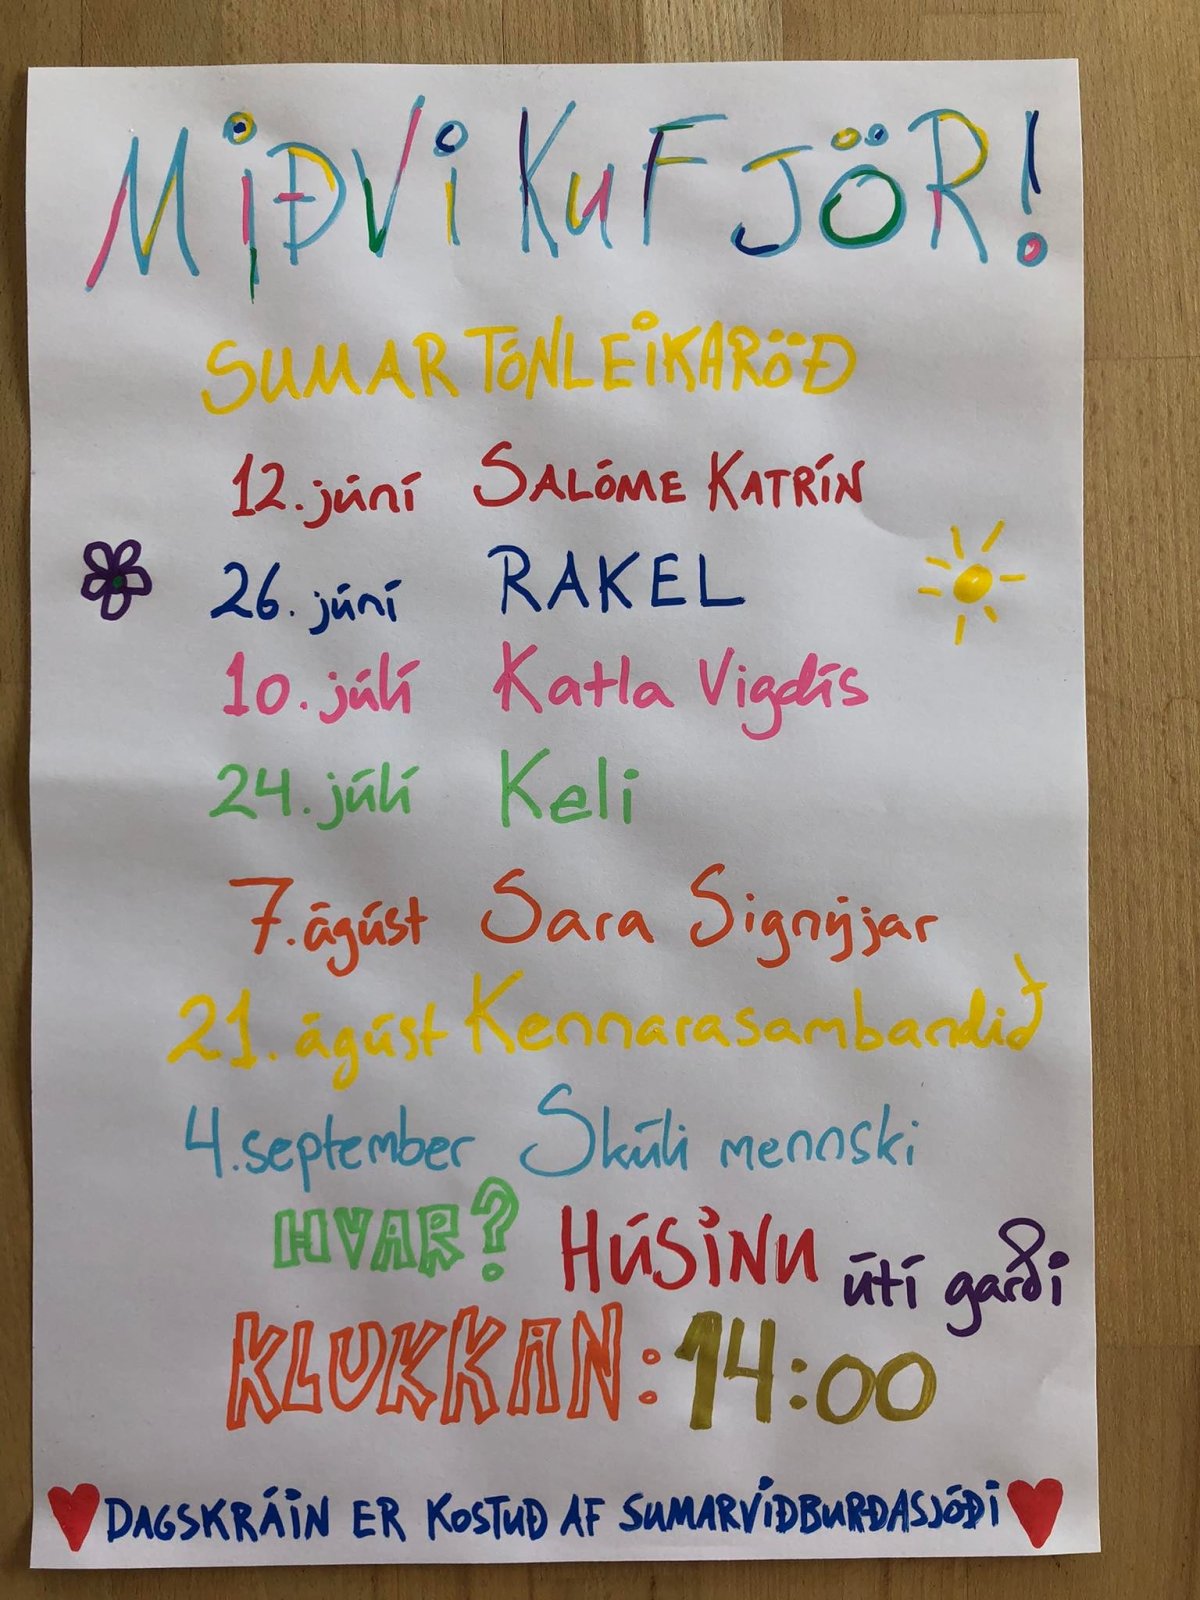 MIÐVIKUFJÖR!
SUMARTÓNLEIKARÖÐ
12. júní SALÓME KATRÍN
26. júní RAKEL
10. júlí Katla Vigdís
24. júlí Keli
7. ágúst Sara Signýjar
21. ágúst Kennarasambandið
4. september Skúli mennski
HVAR? HÚSINU útí garði
KLUKKAN: 14:00
DAGSKRÁIN ER KOSTUÐ AF SUMARVIÐBURÐASJÓÐI